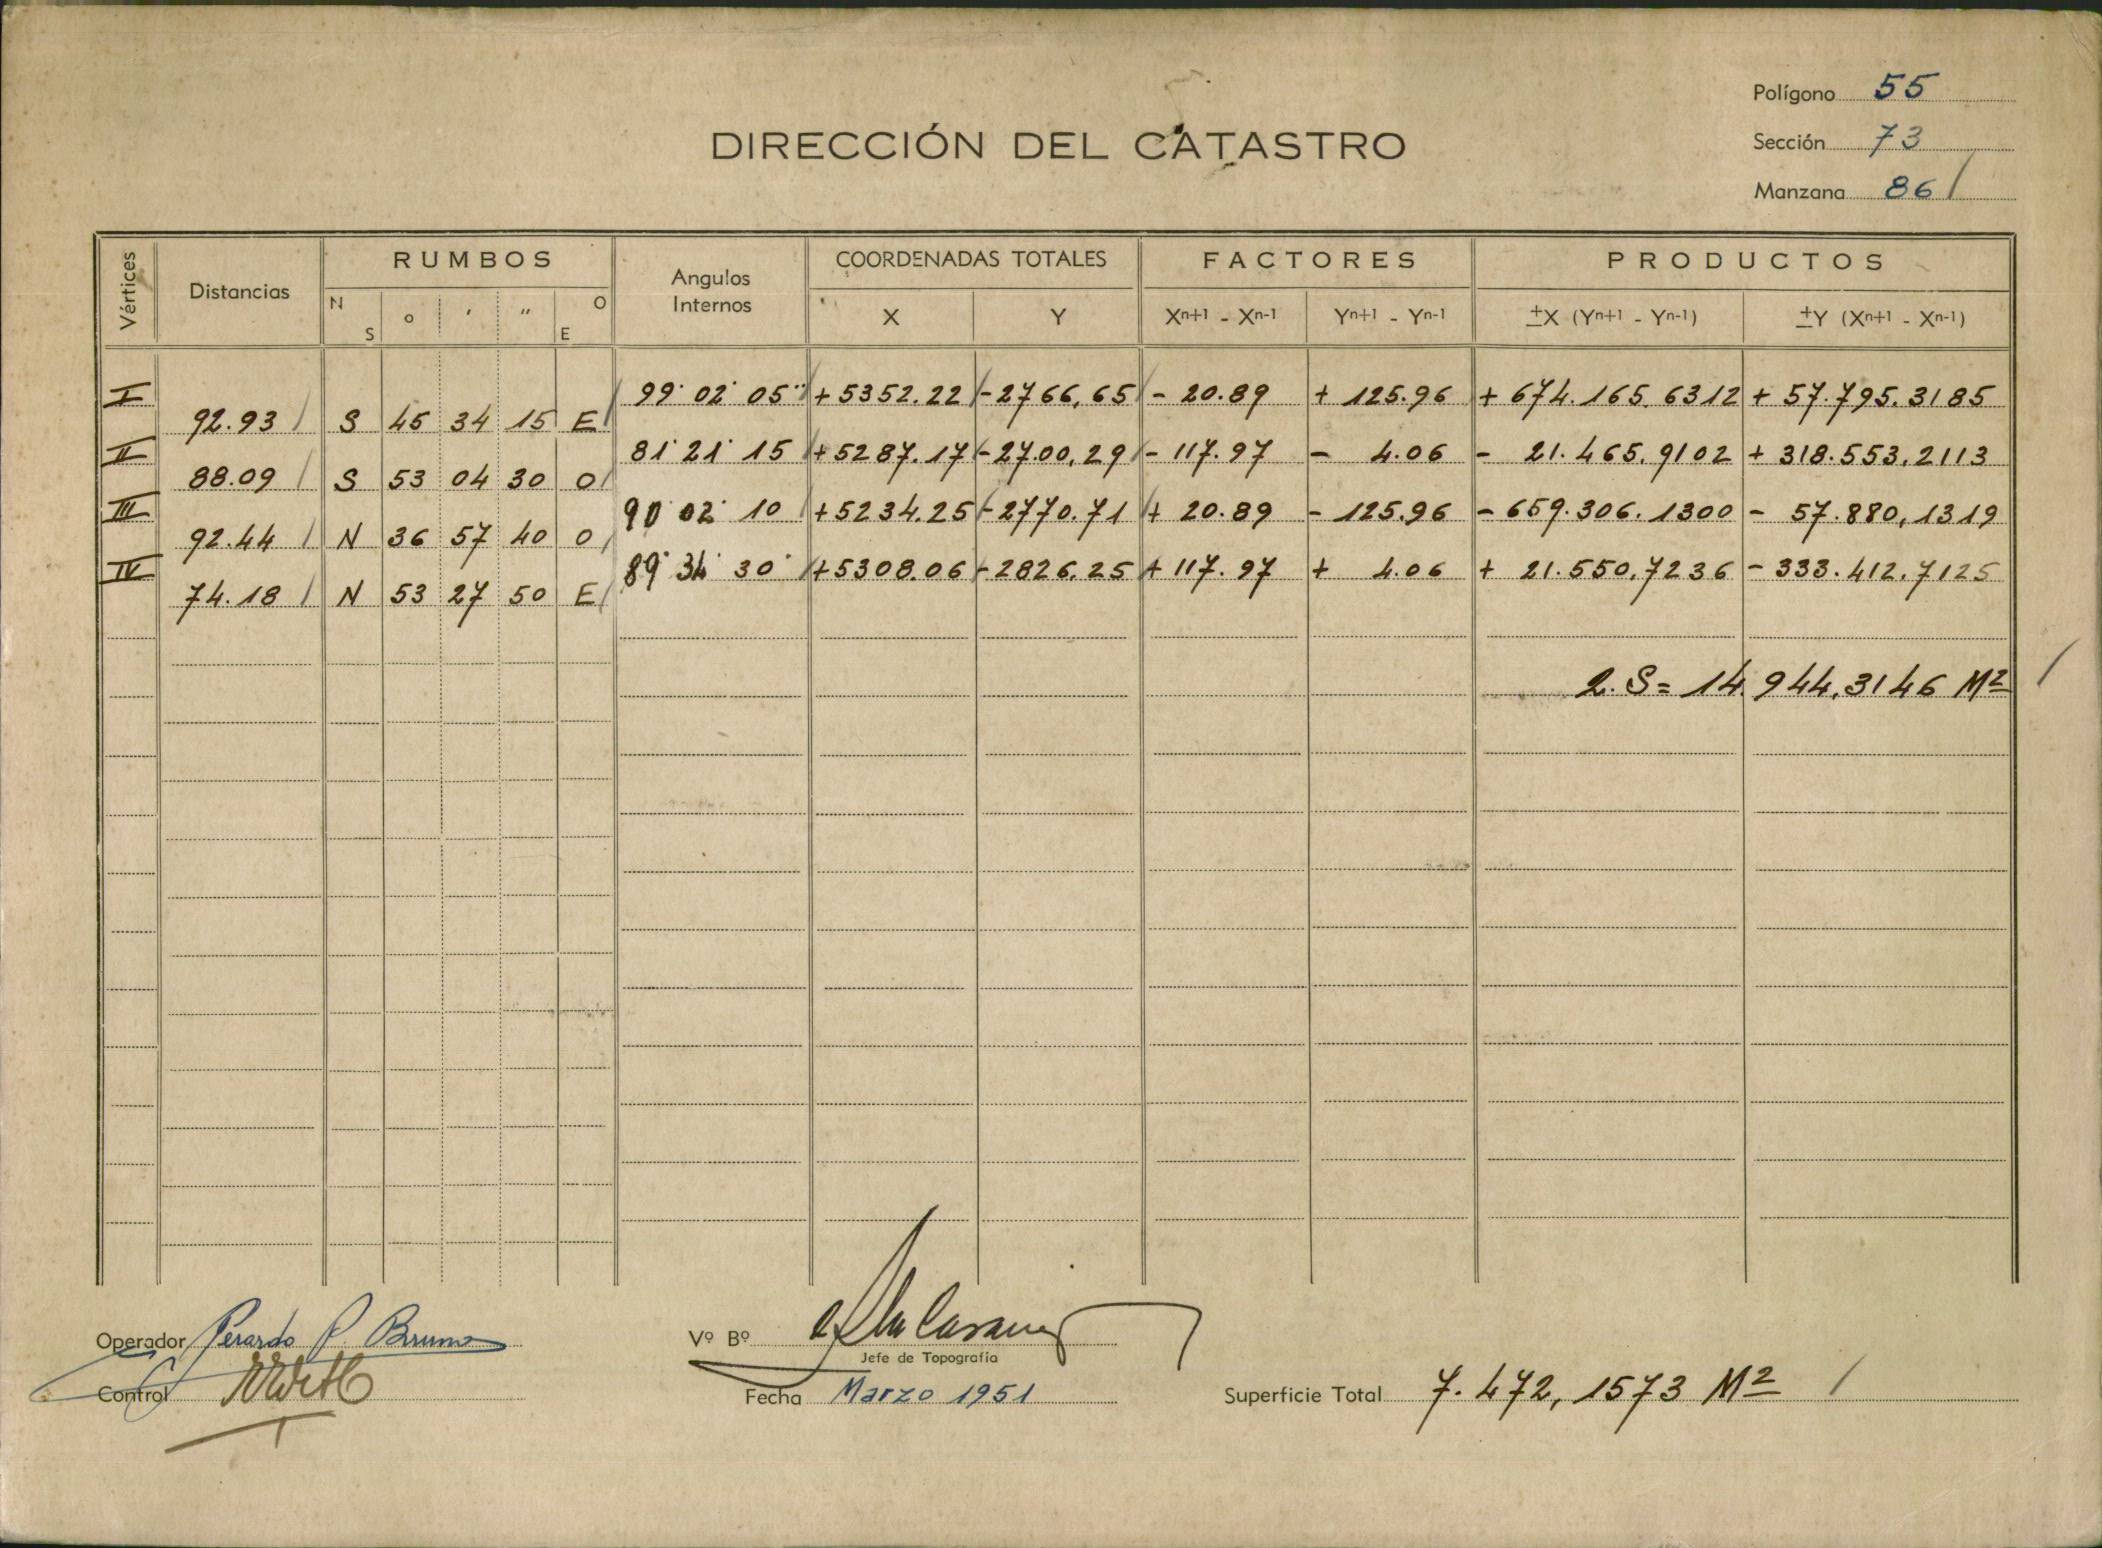 Polígono 55
DIRECCIÓN DEL CATASTRO
Sección 73
Manzana 86
Vértices Distancias RUMBOS Angulos Internos COORDENADAS TOTALES FACTORES PRODUCTOS
N S o ' " O E X Y Xn+1 - Xn-1 Yn+1 - Yn-1 ±X (Yn+1 - Yn-1) ±Y (Xn+1 - Xn-1)
I 99° 02' 05" +5352.22 -2766,65 - 20.89 + 125.96 + 674.165.6312 + 57.795.3185
92.93 S 45 34 15 E
II 81° 21' 15 +5287.17 -2700,29 - 117.97 - 4.06 - 21.465.9102 + 318.553.2113
88.09 S 53 04 30 O
III 90° 02' 10 +5234.25 -2770.71 + 20.89 - 125.96 - 659.306.1300 - 57.880,1319
92.44 N 36 57 40 O
IV 89° 34' 30 +5308.06 -2826.25 + 117.97 + 4.06 + 21.550,7236 - 333.412.7125
74.18 N 53 27 50 E
2.S = 14.944,3146 M2
Operador Bruno
Vº Bº
Jefe de Topografía
Control
Fecha Marzo 1951
Superficie Total 7.472,1573 M2